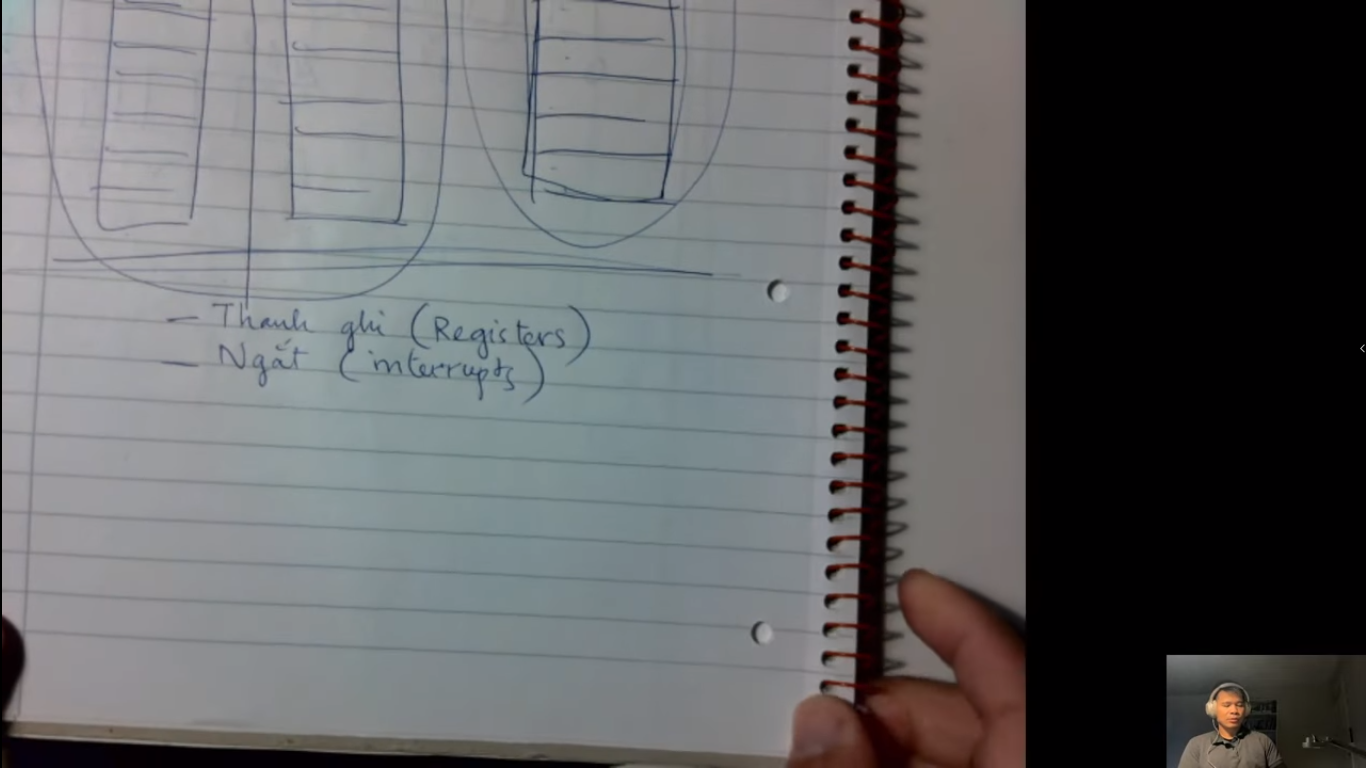 — Thanh ghi (Registers)
— Ngắt (interrupts)